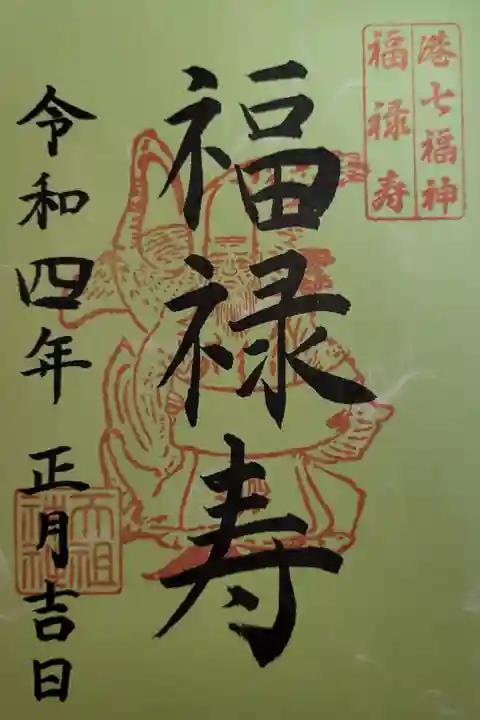 港七福神
福禄寿
福禄寿
令和四年 正月吉日
天祖
神社